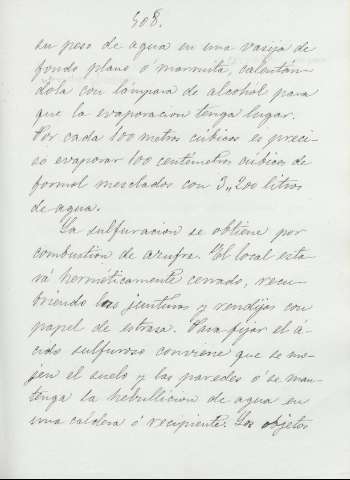 508.
su peso de agua en una vasija de
fondo plano ó marmita, calentán-
dola con lámpara de alcohol para
que la evaporacion tenga lugar.
Por cada 100 metros cúbicos es preci-
so evaporar 100 centímetros cúbicos de
formol mezclados con 3,,200 litros
de agua.
La sulfuracion se obtiene por
combustión de azufre. El local esta-
rá herméticamente cerrado, recu-
briendo las junturas y rendijas con
papel de estrasa. Para fijar el á-
cido sulfuroso conviene que se mo-
jen el suelo y las paredes ó se man-
tenga la hebullicion de agua en
una caldera ó recipiente. Los objetos